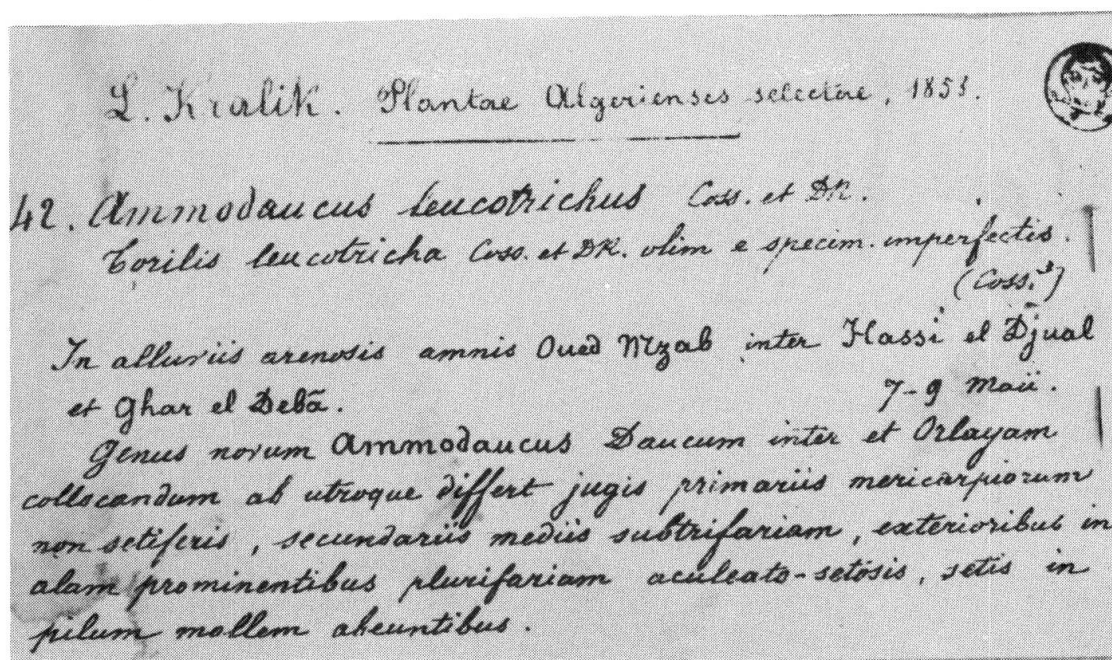 L. Kralik. Plantae Algerienses selectae, 1853.
42. Ammodaucus leucotrichus Coss. et DR.
Torilis leucotricha Coss. et DR. olim e specim. imperfectis.
(Coss.)
In alluviis arenosis amnis Oued Mzab inter Hassi el Djual
et Ghar el Debâ. 7-9 Maii.
Genus novum Ammodaucus Daucum inter et Orlayam
collocandum ab utroque differt jugis primariis mericarpiorum
non setiferis, secundariis mediis subtrifariam, exterioribus in
alam prominentibus plurifariam aculeato-setosis, setis in
pilum mollem abeuntibus.